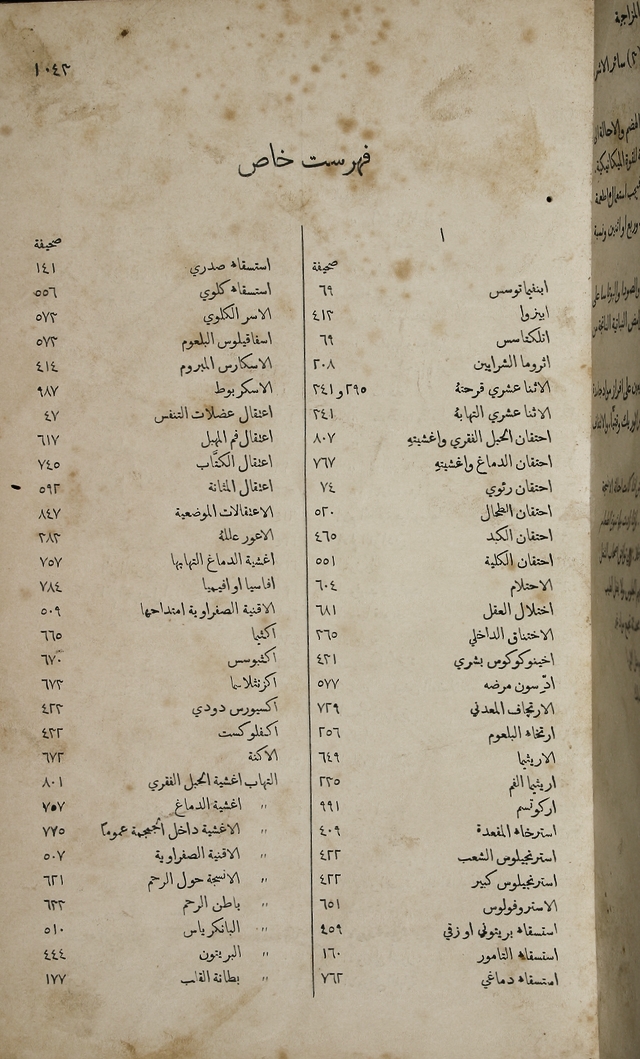 ١٠٤٢
فهرست خاص
ا
صحيفة
ابنفيماتوسس ٦٩
ابيزوا ٤١٢
اتلكتاسس ٦٩
اثروما الشرايين ٢٠٨
الاثنا عشري قرحتهُ ٢٩٥ و٢٤١
الاثنا عشري التهابهُ ٢٤١
احتقان الحبل الفقري واغشيتهِ ٨٠٧
احتقان الدماغ واغشيتهِ ٧٦٧
احتقان رئوي ٧٤
احتقان الطحال ٥٢٠
احتقان الكبد ٤٦٥
احتقان الكلية ٥٥١
الاحتلام ٦٠٤
اختلال العقل ٦٨١
الاختناق الداخلي ٢٦٥
اخينوكوكوس بشري ٤٢١
ادّسون مرضه ٥٧٧
الارتجاف المعدني ٧٢٩
ارتخاء البلعوم ٢٥٦
الاريثيما ٦٤٩
اريثيما الفم ٢٢٥
اركوتسم ٩٩١
استرخاء المقعدة ٤٠٩
استرنجيلوس الشعب ٤٢٢
استرنجيلوس كبير ٤٢٢
الاستروفولوس ٦٥١
استسقاء بريتوني او زقي ٤٥٩
استسقاء التامور ١٦٠
استسقاء دماغي ٧٦٢
صحيفة
استسقاء صدري ١٤١
استسقاء كلوي ٥٥٦
الاسر الكلوي ٥٧٢
اسفاقيلوس البلعوم ٥٧٢
الاسكارس المبروم ٤١٤
الاسكربوط ٩٨٧
اعتقال عضلات التنفس ٤٧
اعتقال فم المهبل ٦١٧
اعتقال الكتَّاب ٧٤٥
اعتقال المثانة ٥٩٢
الاعتقالات الموضعية ٨٤٧
الاعور عللهُ ٢٨٢
اغشية الدماغ التهابها ٧٥٧
افاسيا او افيميا ٧٨٤
الاقنية الصفراوية امتداحها ٥٠٩
اكثيما ٦٦٥
اكثيوسس ٦٧٠
اكزنثلاسما ٦٧٢
اكسيورس دودي ٤٢٢
اكيفلوكست ٤٢٢
الاكنة ٦٧٢
التهاب اغشية الحبل الفقري ٨٠١
〃 اغشية الدماغ ٧٥٧
〃 الاغشية داخل الجمجمة عموماً ٧٧٥
〃 الاقنية الصفراوية ٥٠٧
〃 الانسجة حول الرحم ٦٢١
〃 باطن الرحم ٦٢٢
〃 البانكرياس ٥١٠
〃 البريتون ٤٤٤
〃 بطانة القلب ١٧٧